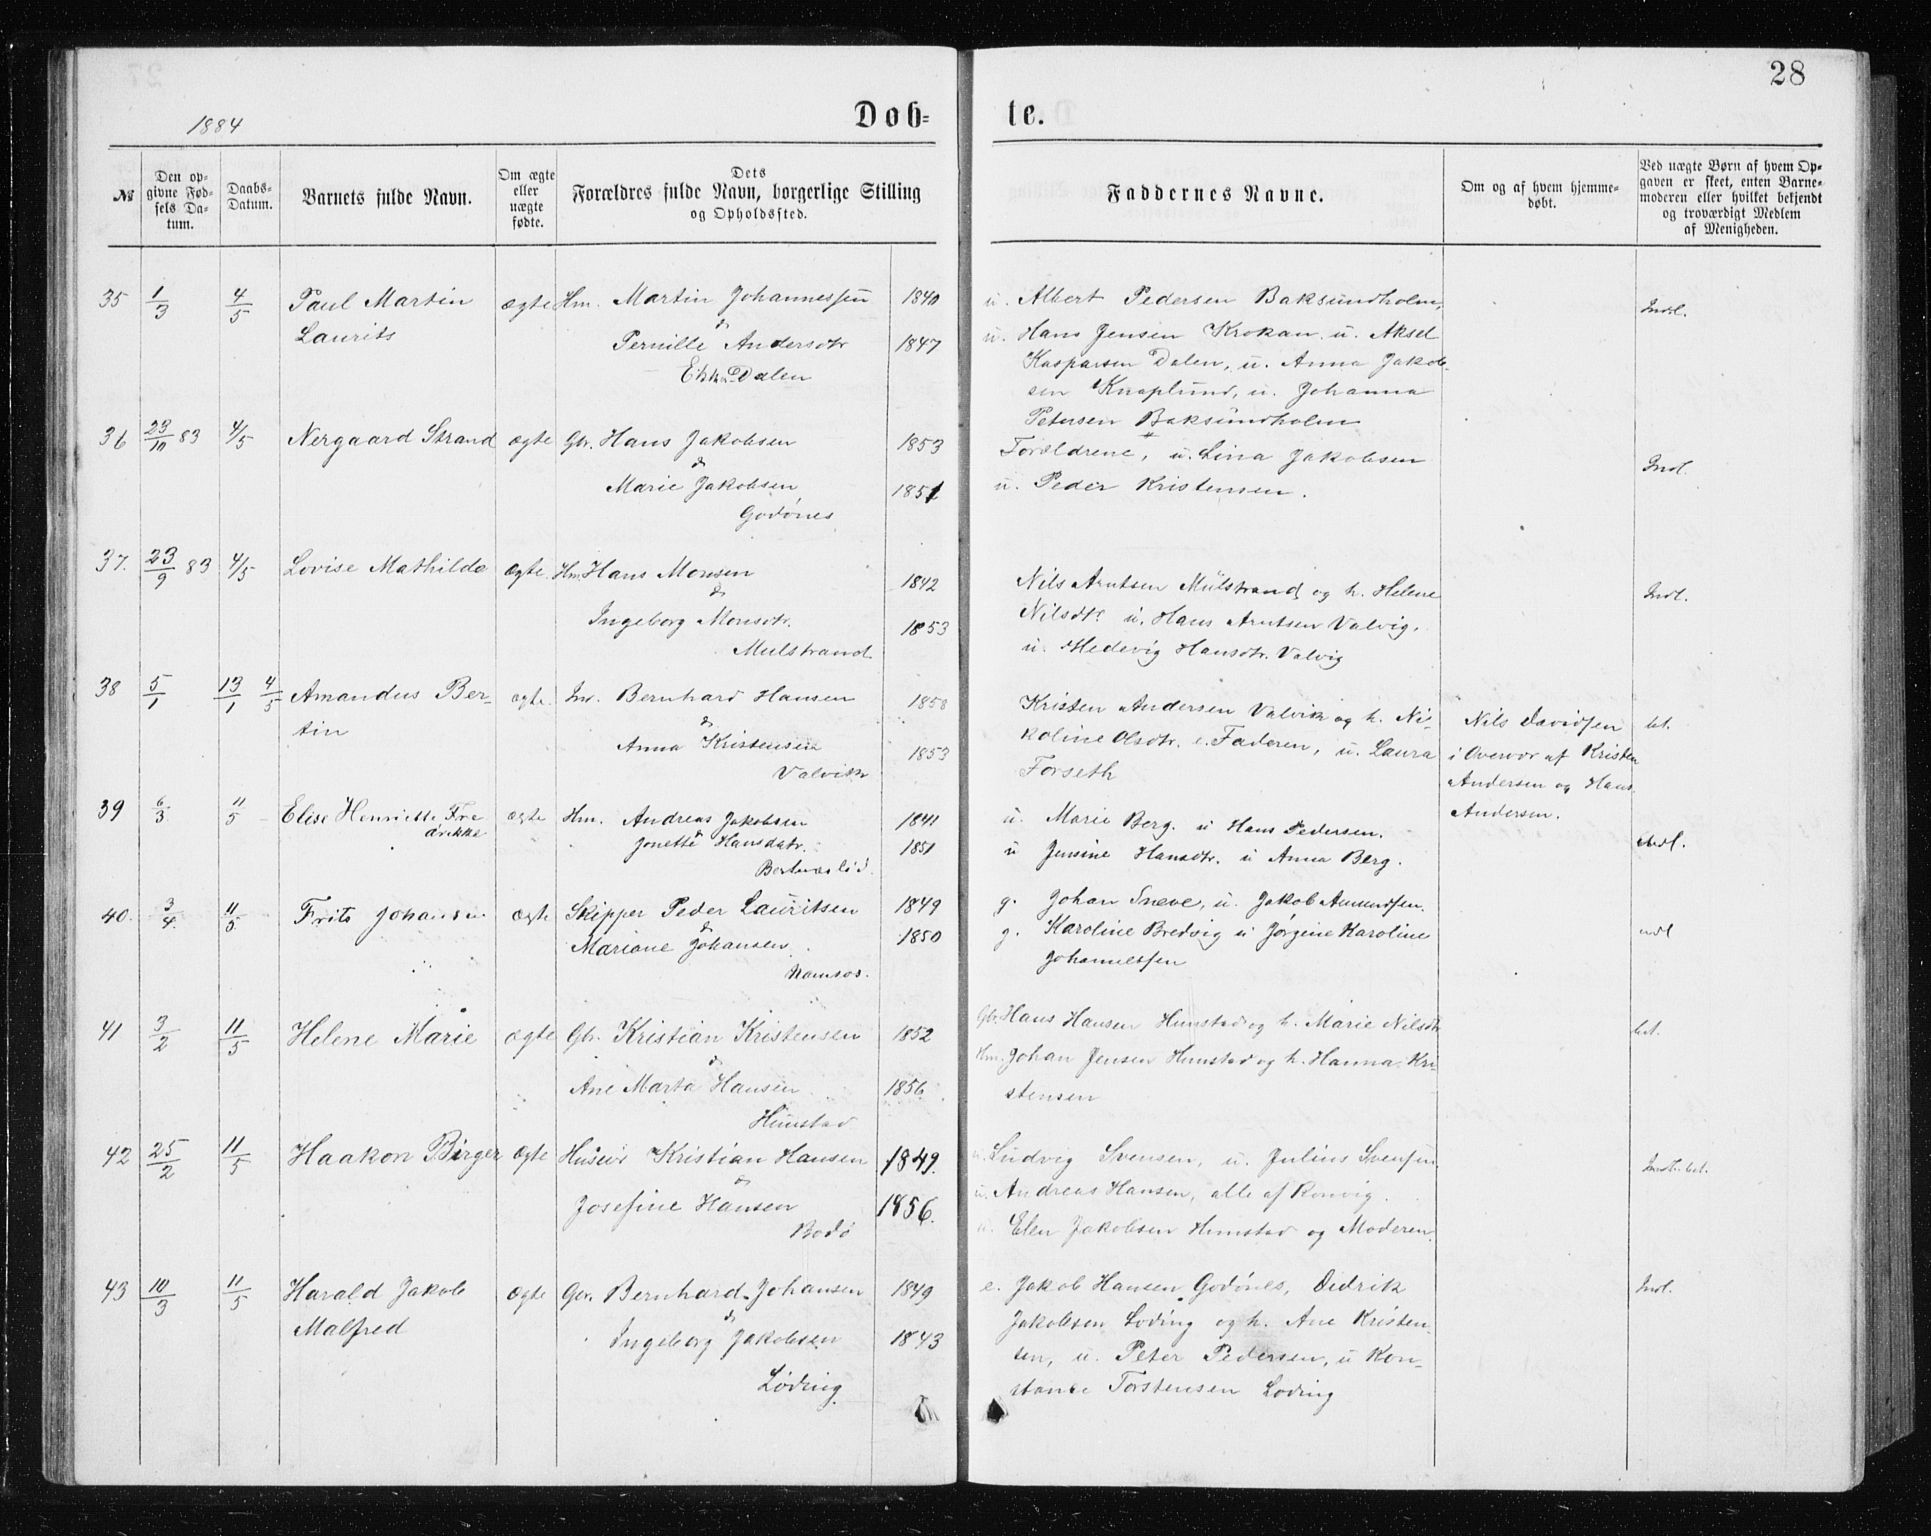 28
1884
Døb= te.
№
Den op-
givne Fød-
sels Da-
tum.
Daabs-
Datum.
Barnets fulde Navn.
Om ægte
eller
uægte
fødte.
Dets
Forældres fulde Navn, borgerlige Stilling
og Opholdssted.
Faddernes Navne.
Om og af hvem hjemme-
døbt.
Ved uægte Børn af hvem Op-
gaven er skeet, enten Barne-
moderen eller hvilket bekjendt
og troværdigt Medlem
af Menigheden.
35 1/3 4/5 Paul Martin ægte Hm. Martin Johannessen 1840
Laurits &
Pernille Andersdtr 1847
Dalen
u. Albert Pedersen Baksundholm,
u. Hans Jensen Krokan. u. Aksel
Kasparsen Dalen, u. Anna Jakob-
sen Knaplund, u. Johanna
Petersen Baksundholm
Indl.
36 23/10 83 4/5 Nergaard Strand ægte Gbr. Hans Jakobsen 1853
&
Marie Jakobsen 1851
Godønes
Forældrene, u. Lina Jakobsen
u. Peder Kristensen.
Indl.
37. 23/9 83 4/5 Lovise Mathilde ægte. Hm Hans Monsen 1842
&
Ingeborg Monsdtr. 1853
Mulstrand
Nils Arntsen Mulstrand og h. Helene
Nilsdtr u. Hans Arntsen Valvig,
u. Hedevig Hansdtr. Valvig
Indl.
38 5/1 13/1 4/5 Amandus Ber- ægte. Ind. Bernhard Hansen 1858
tin &
Anna Kristensen 1853
Valvik
Kristen Andersen Valvik og h. Ni-
koline Olsdtr. e. Faderen, u. Laura
Forseth
Nils Davidsen
i Overvær af Kristen
Andersen og Hans
Andersen.
bet.
39 6/3 11/5 Elise Henriette Fre ægte Hm. Andreas Jakobsen 1841
drikke &
Jonette Hansdatr. 1851
u. Marie Berg. u Hans Pedersen.
u Jensine Hansdtr. u Anna Berg.
Indl.
40. 3/4. 11/5 Frits Johansen ægte Skipper Peder Lauritsen 1849
&
Mariane Johansen 1850
Namsos.
g. Johan Sneve, u. Jakob Amundsen.
g. Karoline Bredvig u Jørgine Karoline
Johannessen
indl
41 3/2 11/5 Helene Marie ægte Gbr. Kristian Kristensen 1852
&
Ane Marta Hansen 1856
Hunstad
Gbr. Hans Hansen Hunstad og h. Marie Nilsdtr
Hm. Johan Jensen Hunstad og h. Hanna Kri
stensen
bet.
42 25/2 11/5 Haakon Birger ægte Huseier Kristian Hansen 1849.
&
Josefine Hansen 1856.
Bodø
u. Ludvig Svensen, u. Julius Svensen,
u. Andreas Hansen, alle af Rønvig.
u. Elen Jakobsen Hunstad og Moderen.
bet.
43 10/3 11/5 Harald Jakob ægte Gbr. Bernhard Johansen 1849
Malfred &
Ingeborg Jakobsen 1843
Løding
e. Jakob Hansen Godønes, Didrik
Jakobsen Løding og h. Ane Kristen-
sen, u. Peter Pedersen, u Kon-
stance Torstensen Løding
Indl.